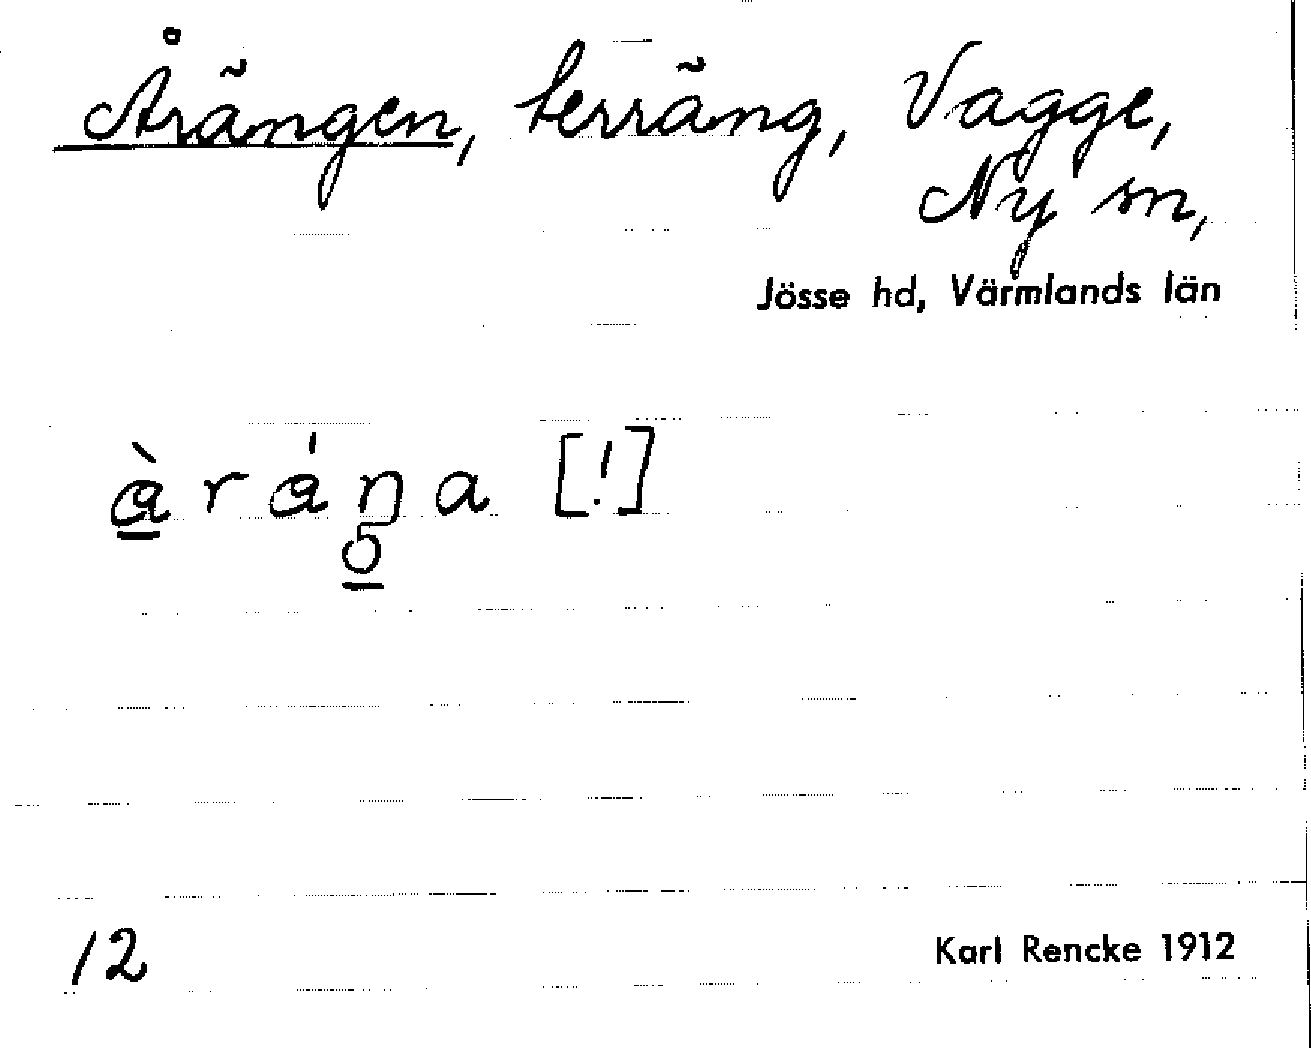 Årängen, terräng, Vagge,
Ny sn,
Jösse hd, Värmlands län
12
Karl Rencke 1912